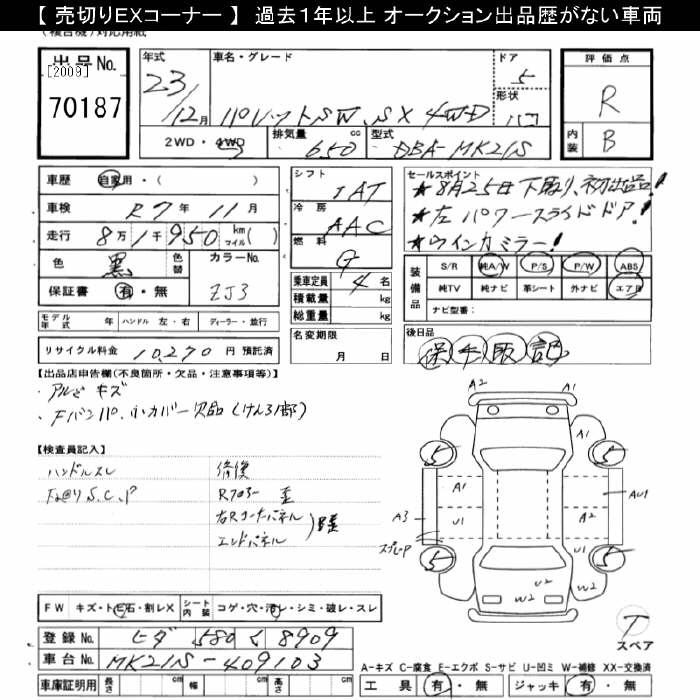 【 売切りEXコーナー 】 過去1年以上 オークション出品歴がない車両
出品No.
[2009]
70187
年式
23/12月
車名・グレード
パレットSW. SX 4WD
ドア
5
形状
評価点
R
内装
B
2WD・4WD
排気量 650 cc
型式 DBA-MK21S
車歴 自家用・( )
車検 R7年11月
走行 8万1千950 km マイル( )
色 黒 色替 カラーNo.
保証書 有・無 ZJ3
シフト IAT
冷房 AAC
燃料 G
乗車定員 4名
積載量 kg
総重量 kg
セールスポイント
★8月25日下取り、初出品!
★左パワースライドドア!
★ウインカミラー!
装備品
S/R 純A/W P/S P/W ABS
純TV 純ナビ 革シート 外ナビ エアB
ナビ型番:
モデル年式 年 ハンドル 左・右 ディーラー・並行
リサイクル料金 10,270 円 預託済
名変期限
月 日
後日品
保 手 取 記
【出品店申告欄(不良箇所・欠品・注意事項等)】
・アルミキズ
・Fバンパ 小カバー欠品(けん引部)
【検査員記入】
ハンドルスレ
S.C.P
修復
右Rコーナーパネル
エンドパネル
A2
A1
A1
A1
AU1
A3
U1
A2
スプレーP
U2
W2
W2
U2
5
5
5
5
T
スペア
FW キズ・トビ石・割レX
シート内装 コゲ・穴・汚レ・シミ・破レ・スレ
登録No. 580 く 8909
車台No. MK21S-409103
車庫証明用 長さ cm 幅 cm 高さ cm
A-キズ C-腐食 E-エクボ S-サビ U-凹ミ W-補修 XX-交換済
工具 有・無 ジャッキ 有・無